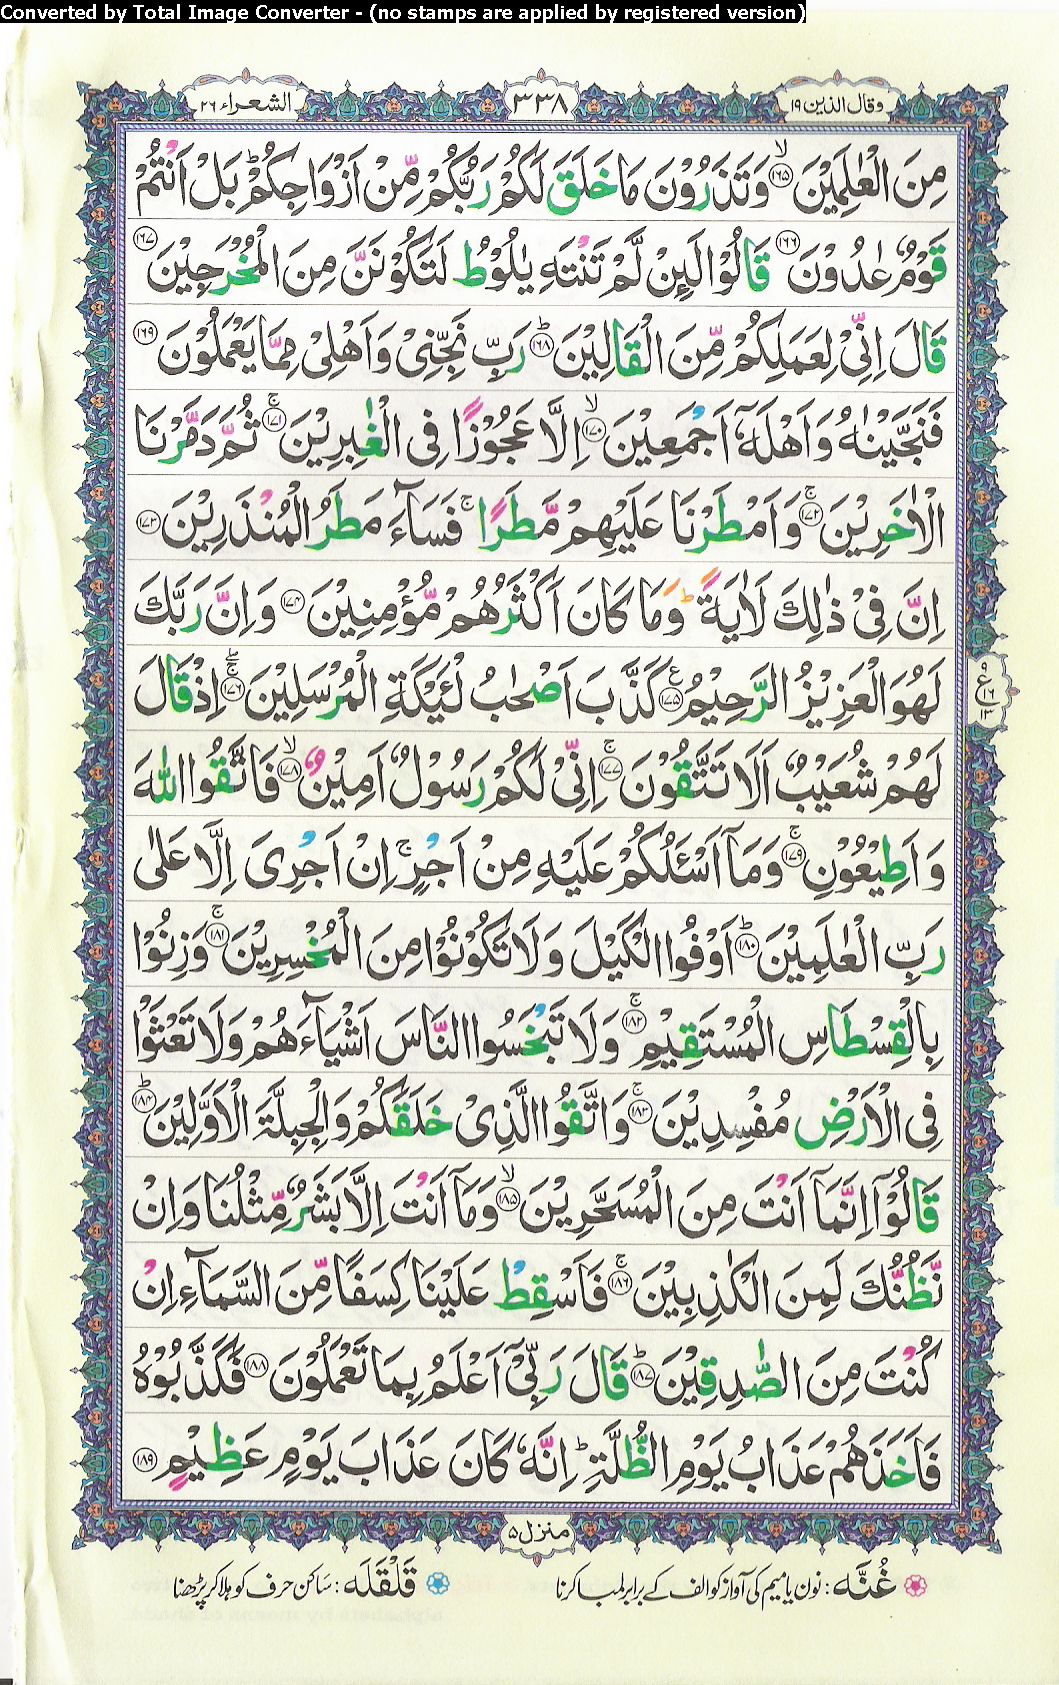 Converted by Total Image Converter - (no stamps are applied by registered version)
وقال الذین ۱۹ ۳۳۸ الشعراء ۲۶
مِنَ الْعٰلَمِیْنَ ۙ﴿۱۶۵﴾ وَتَذَرُوْنَ مَا خَلَقَ لَكُمْ رَبُّكُمْ مِّنْ اَزْوَاجِكُمْ ؕ بَلْ اَنْتُمْ
قَوْمٌ عٰدُوْنَ ﴿۱۶۶﴾ قَالُوْا لَىِٕنْ لَّمْ تَنْتَهِ یٰلُوْطُ لَتَكُوْنَنَّ مِنَ الْمُخْرَجِیْنَ ﴿۱۶۷﴾
قَالَ اِنِّیْ لِعَمَلِكُمْ مِّنَ الْقَالِیْنَ ؕ﴿۱۶۸﴾ رَبِّ نَجِّنِیْ وَاَهْلِیْ مِمَّا یَعْمَلُوْنَ ﴿۱۶۹﴾
فَنَجَّیْنٰهُ وَاَهْلَهٗۤ اَجْمَعِیْنَ ۙ﴿۱۷۰﴾ اِلَّا عَجُوْزًا فِی الْغٰبِرِیْنَ ۚ﴿۱۷۱﴾ ثُمَّ دَمَّرْنَا
الْاٰخَرِیْنَ ۚ﴿۱۷۲﴾ وَاَمْطَرْنَا عَلَیْهِمْ مَّطَرًا ۚ فَسَآءَ مَطَرُ الْمُنْذَرِیْنَ ﴿۱۷۳﴾
اِنَّ فِیْ ذٰلِكَ لَاٰیَةً ؕ وَمَا كَانَ اَكْثَرُهُمْ مُّؤْمِنِیْنَ ﴿۱۷۴﴾ وَاِنَّ رَبَّكَ
لَهُوَ الْعَزِیْزُ الرَّحِیْمُ ﴿۱۷۵﴾ ع كَذَّبَ اَصْحٰبُ لْـَٔیْكَةِ الْمُرْسَلِیْنَ ۚۖ﴿۱۷۶﴾ اِذْ قَالَ
۹ ع ۱۶ ۱۳
لَهُمْ شُعَیْبٌ اَلَا تَتَّقُوْنَ ۚ﴿۱۷۷﴾ اِنِّیْ لَكُمْ رَسُوْلٌ اَمِیْنٌ ۙ﴿۱۷۸﴾ فَاتَّقُوا اللّٰهَ
وَاَطِیْعُوْنِ ۚ﴿۱۷۹﴾ وَمَاۤ اَسْـَٔلُكُمْ عَلَیْهِ مِنْ اَجْرٍ ۚ اِنْ اَجْرِیَ اِلَّا عَلٰی
رَبِّ الْعٰلَمِیْنَ ؕ﴿۱۸۰﴾ اَوْفُوا الْكَیْلَ وَلَا تَكُوْنُوْا مِنَ الْمُخْسِرِیْنَ ۚ﴿۱۸۱﴾ وَزِنُوْا
بِالْقِسْطَاسِ الْمُسْتَقِیْمِ ۚ﴿۱۸۲﴾ وَلَا تَبْخَسُوا النَّاسَ اَشْیَآءَهُمْ وَلَا تَعْثَوْا
فِی الْاَرْضِ مُفْسِدِیْنَ ۚ﴿۱۸۳﴾ وَاتَّقُوا الَّذِیْ خَلَقَكُمْ وَالْجِبِلَّةَ الْاَوَّلِیْنَ ؕ﴿۱۸۴﴾
قَالُوْۤا اِنَّمَاۤ اَنْتَ مِنَ الْمُسَحَّرِیْنَ ۙ﴿۱۸۵﴾ وَمَاۤ اَنْتَ اِلَّا بَشَرٌ مِّثْلُنَا وَاِنْ
نَّظُنُّكَ لَمِنَ الْكٰذِبِیْنَ ۚ﴿۱۸۶﴾ فَاَسْقِطْ عَلَیْنَا كِسَفًا مِّنَ السَّمَآءِ اِنْ
كُنْتَ مِنَ الصّٰدِقِیْنَ ؕ﴿۱۸۷﴾ قَالَ رَبِّیْۤ اَعْلَمُ بِمَا تَعْمَلُوْنَ ﴿۱۸۸﴾ فَكَذَّبُوْهُ
فَاَخَذَهُمْ عَذَابُ یَوْمِ الظُّلَّةِ ؕ اِنَّهٗ كَانَ عَذَابَ یَوْمٍ عَظِیْمٍ ﴿۱۸۹﴾
منزل ۵
غُنَّه : نون یا میم کی آواز کو الف کے برابر لمبا کرنا قَلْقَلَه : ساکن حرف کو ہلا کر پڑھنا